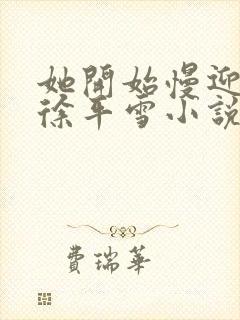 她開始慢迎
徐平雪小說
費瑞華